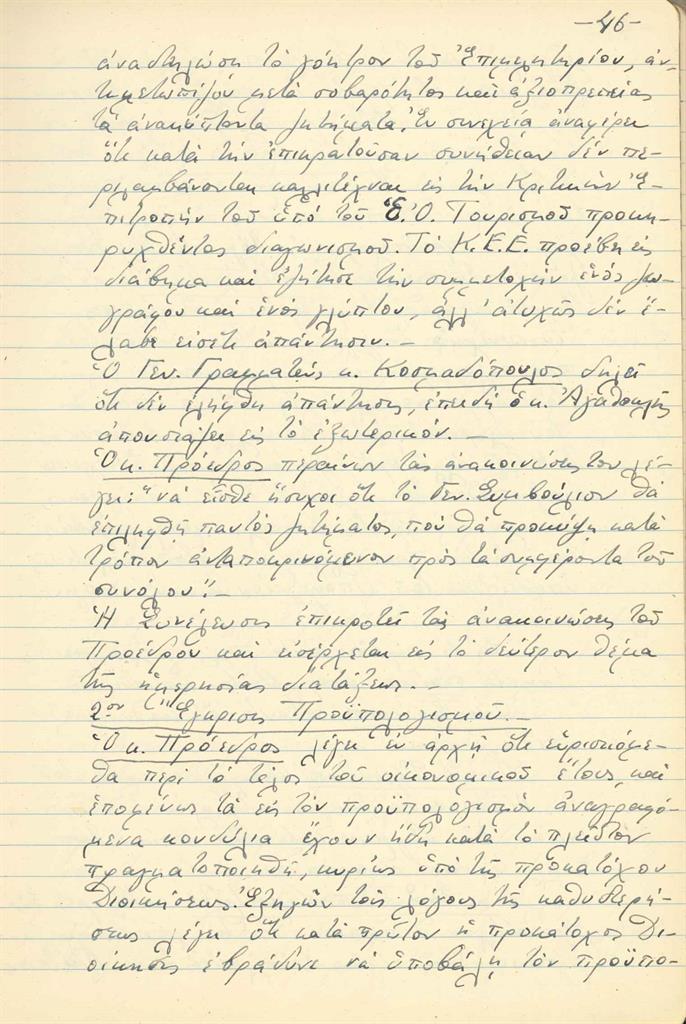 -46-
ἀναδηλώση τὸ γόητρον τοῦ Ἐπιμελητηρίου, ἀν-
τιμετωπίζον μετὰ σοβαρότητος καὶ ἀξιοπρεπείας
τὰ ἀνακύπτοντα ζητήματα. Ἐν συνεχείᾳ ἀναφέρει
ὅτι κατὰ τὴν ἐπικρατοῦσαν συνήθειαν δὲν πε-
ριλαμβάνονται καλλιτέχναι εἰς τὴν Κριτικὴν Ἐ-
πιτροπὴν τοῦ ὑπὸ τοῦ Ε.Ο. Τουρισμοῦ προκη-
ρυχθέντος διαγωνισμοῦ. Τὸ Κ.Ε.Ε. προέβη εἰς
διάβημα καὶ ἐζήτησε τὴν συμμετοχὴν ἑνὸς ζω-
γράφου καὶ ἑνὸς γλύπτου, ἀλλ' ἀτυχῶς δὲν ἔ-
λαβε εἰσέτι ἀπάντησιν.-
Ὁ Γεν. Γραμματεὺς κ. Κοσμαδόπουλος δηλοῖ
ὅτι δὲν ἐλήφθη ἀπάντησις, ἐπειδὴ ὁ κ.
ἀπουσιάζει εἰς τὸ ἐξωτερικόν.-
Ὁ κ. Πρόεδρος περαίνων τὰς ἀνακοινώσεις του λέ-
γει: "νὰ εἶσθε ἥσυχοι ὅτι τὸ Γεν. Συμβούλιον θὰ
ἐπιληφθῇ παντὸς ζητήματος, ποὺ θὰ προκύψῃ κατὰ
τρόπον ἀνταποκρινόμενον πρὸς τὰ συμφέροντα τοῦ
συνόλου".-
Ἡ Συνέλευσις ἐπικροτεῖ τὰς ἀνακοινώσεις τοῦ
Προέδρου καὶ εἰσέρχεται εἰς τὸ δεύτερον θέμα
τῆς ἡμερησίας διατάξεως.-
2ον "Ἔγκρισις Προϋπολογισμοῦ.-
Ὁ κ. Πρόεδρος λέγει ἐν ἀρχῇ ὅτι εὑρισκόμε-
θα περὶ τὸ τέλος τοῦ οἰκονομικοῦ ἔτους, καὶ
ἑπομένως τὰ εἰς τὸν προϋπολογισμὸν ἀναγραφό-
μενα κονδύλια ἔχουν ἤδη κατὰ τὸ πλεῖστον
πραγματοποιηθῆ, κυρίως ὑπὸ τῆς προκατόχου
Διοικήσεως. Ἐξηγῶν τοὺς λόγους τῆς καθυστερή-
σεως λέγει ὅτι κατὰ πρῶτον ἡ προκάτοχος Δι-
οίκησις ἐβράδυνε νὰ ὑποβάλῃ τὸν προϋπο-